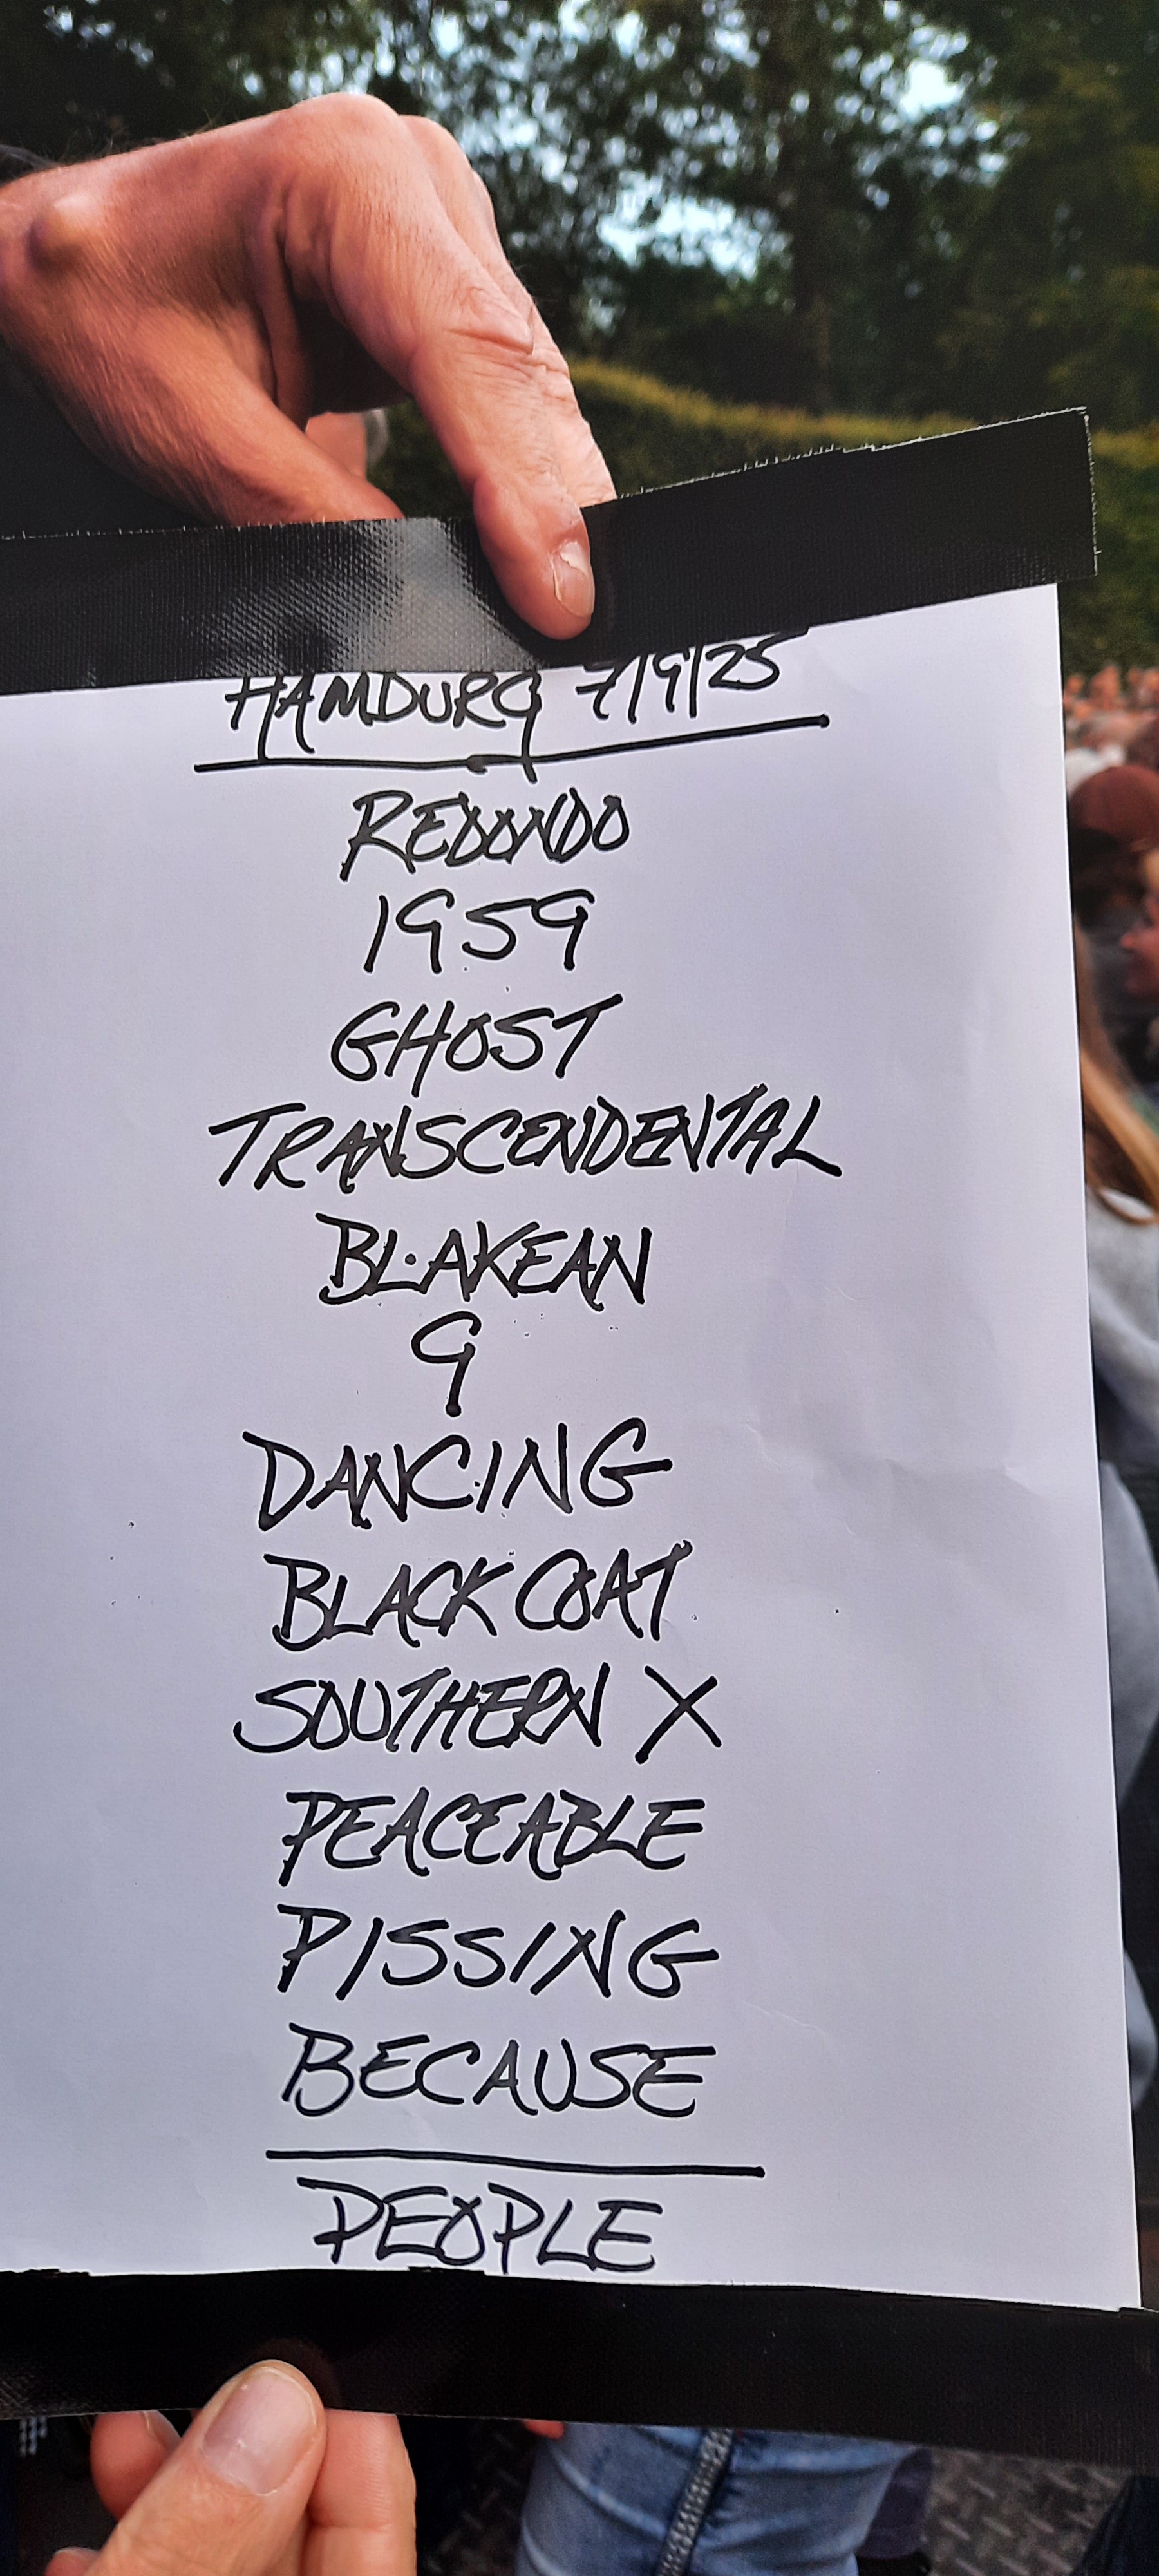 HAMBURG 7/9/25
REDONDO
1959
GHOST
TRANSCENDENTAL
BLAKEAN
9
DANCING
BLACK COAT
SOUTHERN X
PEACEABLE
PISSING
BECAUSE
PEOPLE